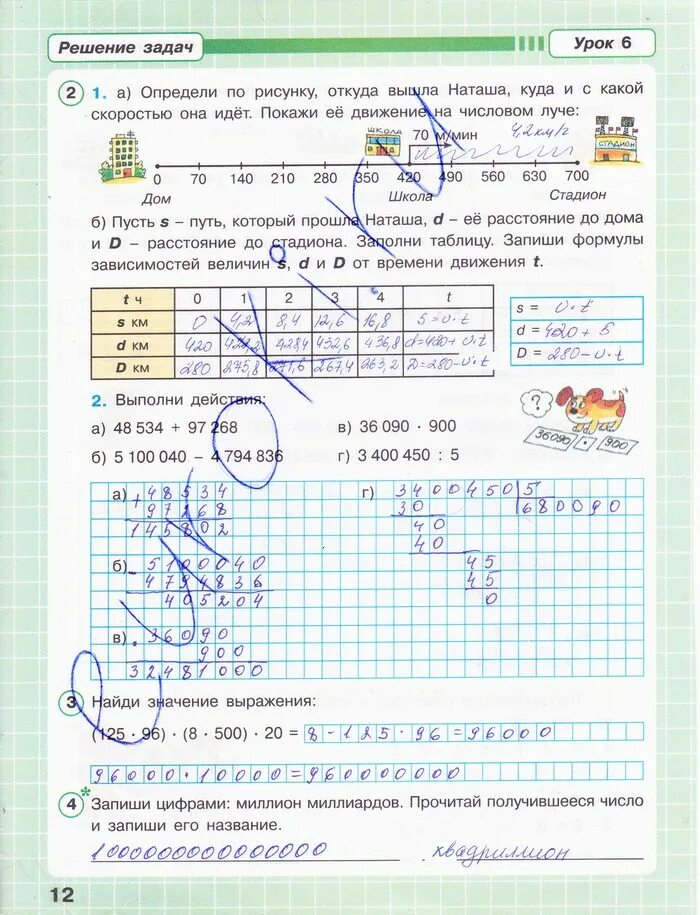 Решение задач
Урок 6
2 1. а) Определи по рисунку, откуда вышла Наташа, куда и с какой
скоростью она идёт. Покажи её движение на числовом луче:
ШКОЛА
70 м/мин
4,2 км/г
СТАДИОН
0 70 140 210 280 350 420 490 560 630 700
Дом Школа Стадион
б) Пусть s – путь, который прошла Наташа, d – её расстояние до дома
и D – расстояние до стадиона. Заполни таблицу. Запиши формулы
зависимостей величин s, d и D от времени движения t.
t ч 0 1 2 3 4 t
s км 0 4,2 8,4 12,6 16,8 S=υ·t
d км 420 424,2 428,4 432,6 436,8 d=420+υ·t
D км 280 275,8 271,6 267,4 263,2 D=280-υ·t
s = υ·t
d = 420+s
D = 280-υ·t
2. Выполни действия:
а) 48 534 + 97 268
в) 36 090 · 900
б) 5 100 040 – 4 794 836
г) 3 400 450 : 5
?
36090 · 900
а) + 48534
97268
145802
б) - 5100040
4794836
405204
в) · 36090
900
32481000
г) 3400450 5
30 680090
40
40
45
45
0
3 Найди значение выражения:
(125 · 96) · (8 · 500) · 20 = 8·125·96=96000
96000·10000=960000000
4* Запиши цифрами: миллион миллиардов. Прочитай получившееся число
и запиши его название.
1000000000000000 квадриллион
12